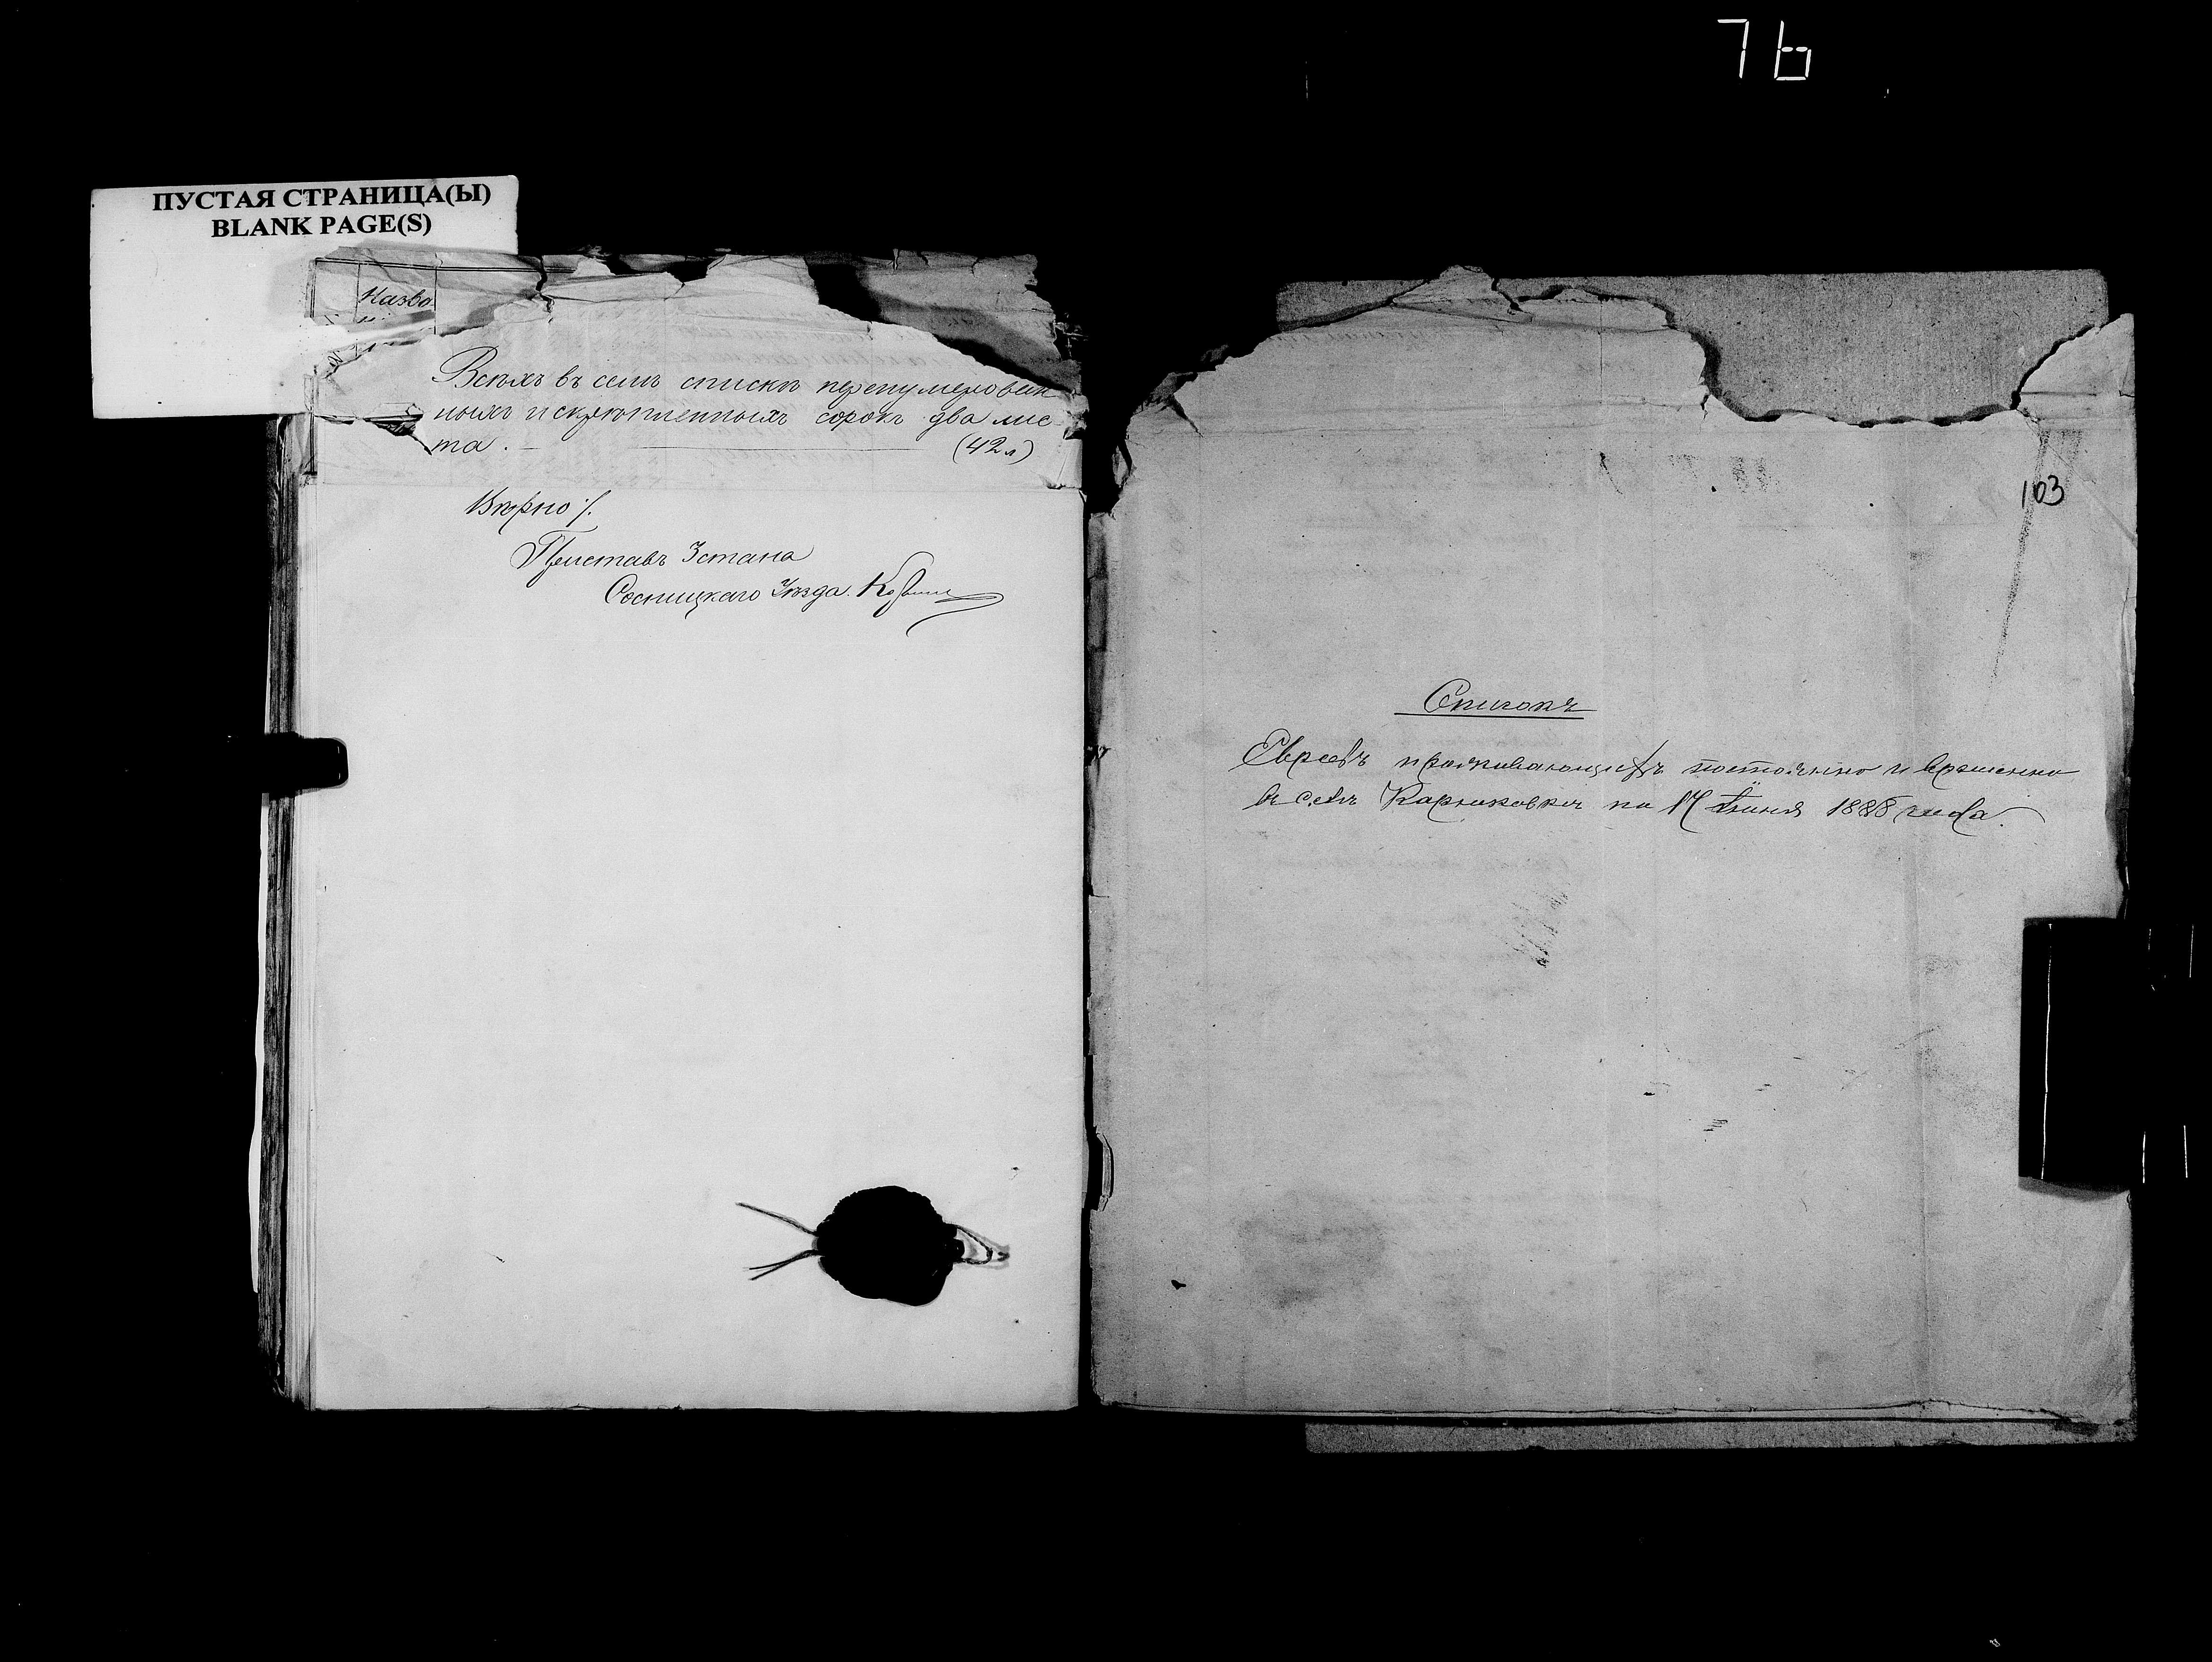 76
ПУСТАЯ СТРАНИЦА(Ы)
BLANK PAGE(S)
Назва
Всѣхъ въ семъ спискѣ перенумерован
ныхъ и скрѣпленныхъ сорокъ два лис
та. — (42 л)
Вѣрно /.
Приставъ 3 стана
Сосницкаго Уѣзда.
103
Списокъ
Евреевъ проживающихъ постоянно и временно
въ селѣ Карюковкѣ по 17 Іюня 1888 года.